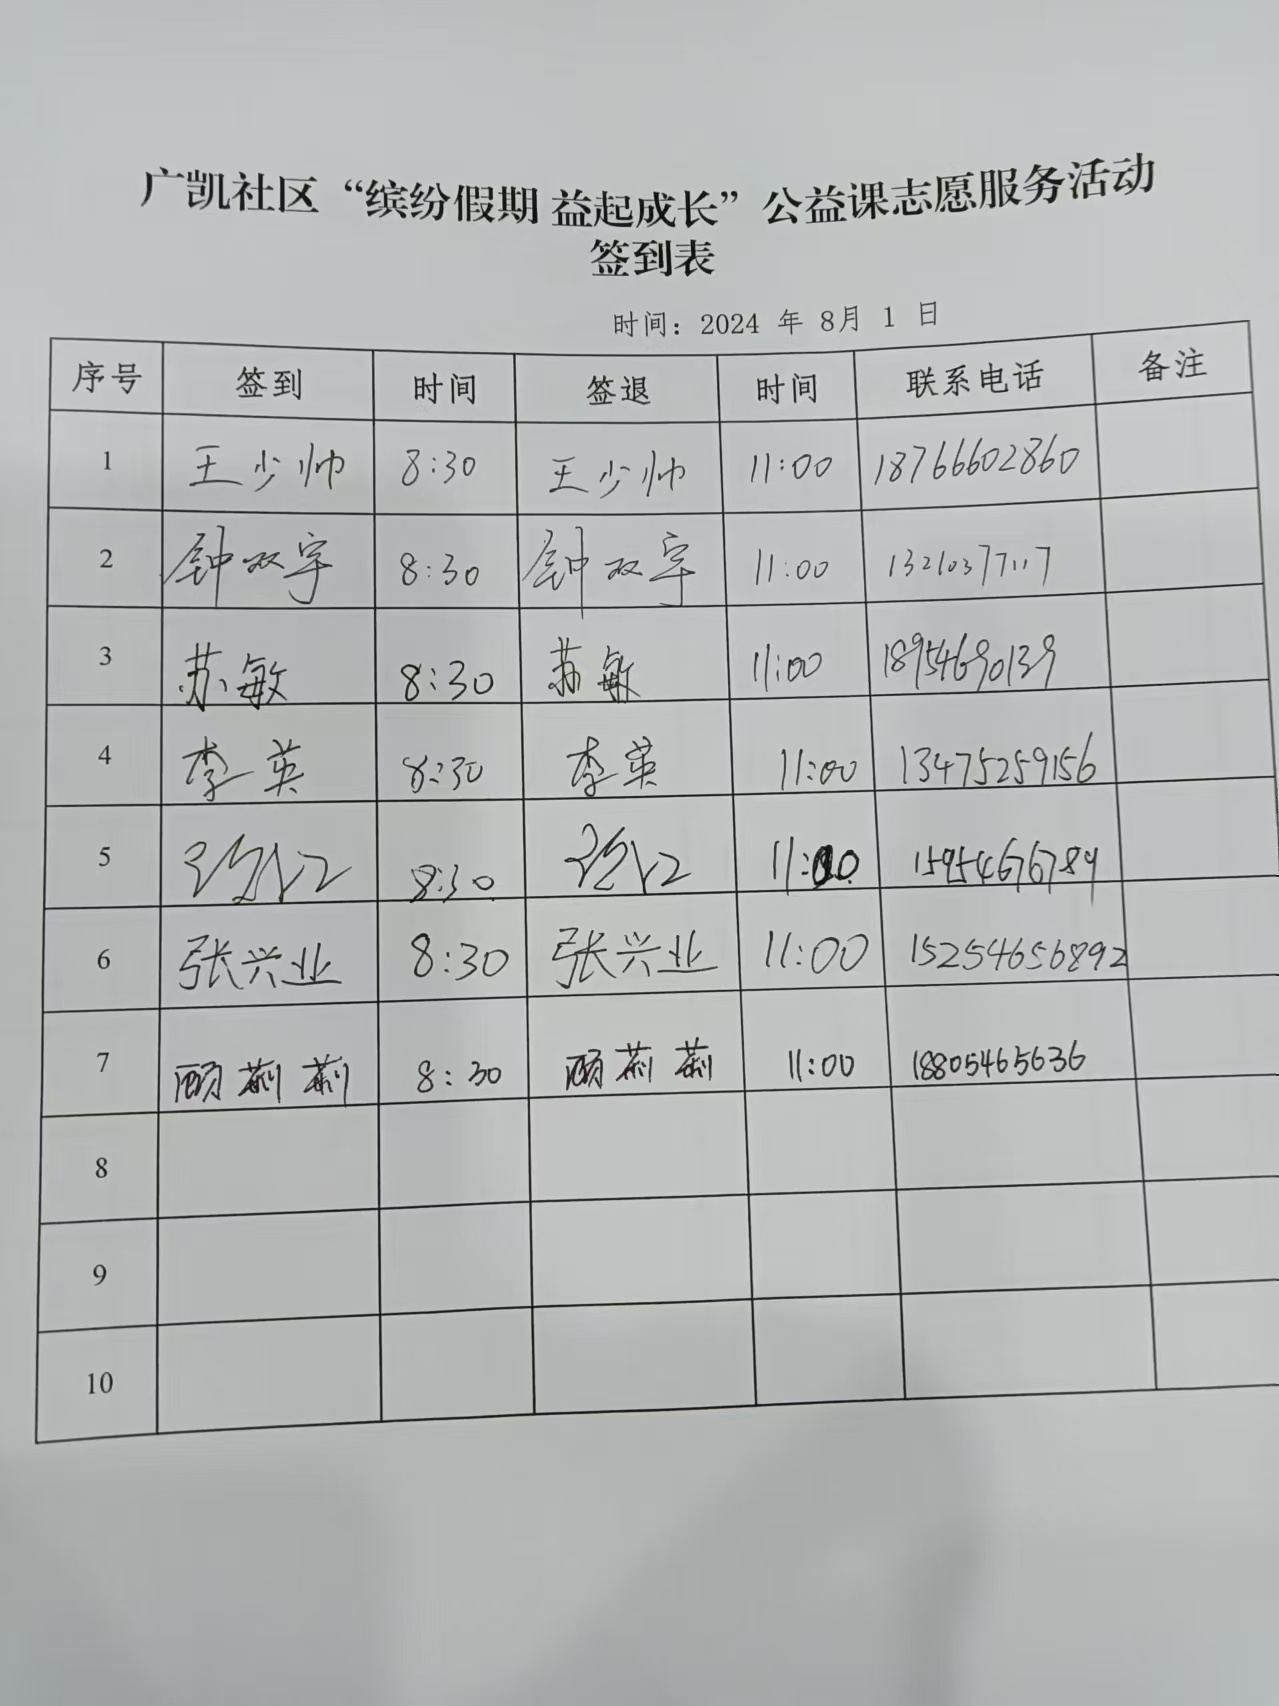 广凯社区“缤纷假期 益起成长”公益课志愿服务活动
签到表
时间：2024 年 8月 1 日
序号 签到 时间 签退 时间 联系电话 备注
1 王少帅 8:30 王少帅 11:00 18766602860
2 钟双宇 8:30 钟双宇 11:00 13210377117
3 苏敏 8:30 苏敏 11:00 18954690139
4 李英 8:30 李英 11:00 13475259156
5 8:30 11:00 15954676789
6 张兴业 8:30 张兴业 11:00 15254656892
7 顾莉莉 8:30 顾莉莉 11:00 18805465636
8
9
10